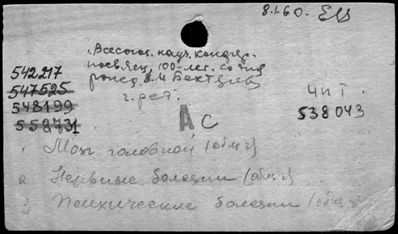 8.I.60.
Всесоюз. науч. конфер.
посвящ. 100-лет. со дня
рожд. В.М. Бехтерева
542217
547525
548199
558731
г. рет.
чит
538043
А с
1 Мозг головной (общ.)
2 Нервные болезни (общ.)
3 Психические болезни (общ.)